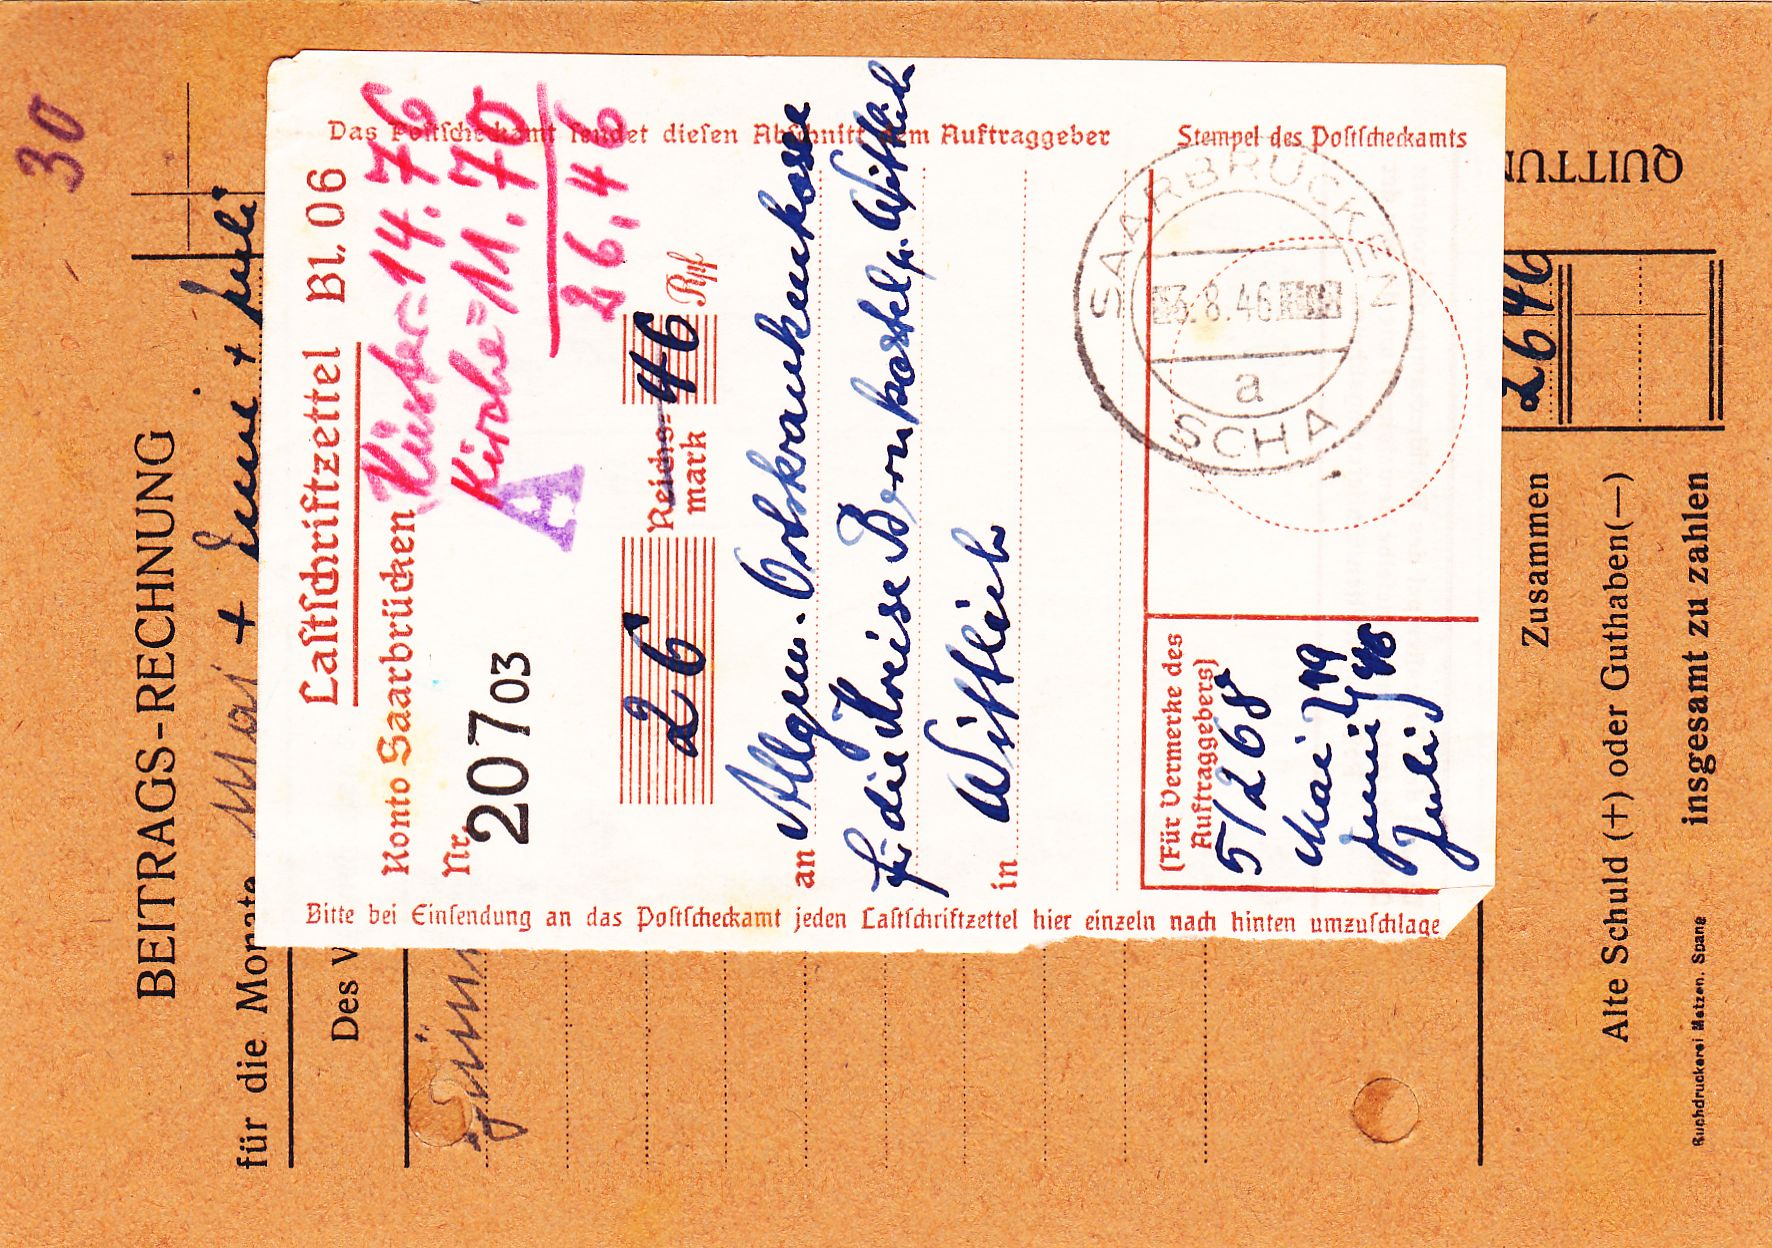 30
BEITRAGS-RECHNUNG
für die Monate Mai + Juni + Juli
Des V
QUITTUN
Zusammen 26 46
Alte Schuld (+) oder Guthaben (—)
insgesamt zu zahlen
Buchdruckerei Metzen, Spang
Das Postscheckamt sendet diesen Abschnitt dem Auftraggeber
Lastschriftzettel Bl. 06
Konto Saarbrücken
Nr. 207 03
Küster = 14.76
Kirche = 11.70
26,46
A
26 Reichsmark 46 Rpf
an Allgem. Ortskrankenkasse
für die Kreise Bernkastel u. Wittlich
in Wittlich
Stempel des Postscheckamts
SAARBRÜCKEN
3.8.46
a
SCHA
(Für Vermerke des
Auftraggebers)
5/268
Mai
Juni 46
Juli
Bitte bei Einsendung an das Postscheckamt jeden Lastschriftzettel hier einzeln nach hinten umzuschlage